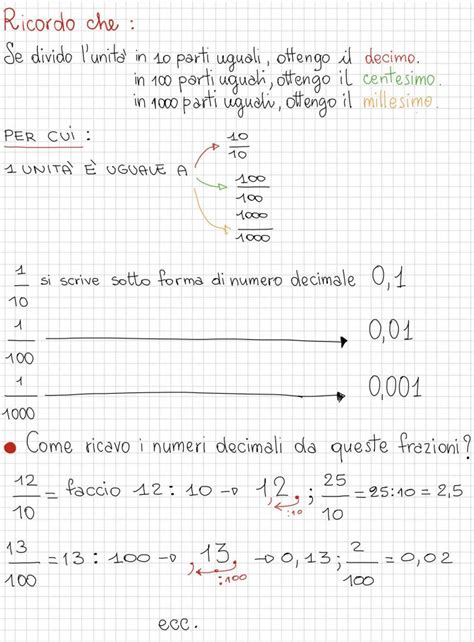 Ricordo che :
Se divido l'unità in 10 parti uguali, ottengo il decimo.
in 100 parti uguali, ottengo il centesimo.
in 1000 parti uguali, ottengo il millesimo.
PER CUI :
1 UNITA' È UGUALE A
10/10
100/100
1000/1000
1/10 si scrive sotto forma di numero decimale 0,1
1/100 → 0,01
1/1000 → 0,001
• Come ricavo i numeri decimali da queste frazioni?
12/10 = faccio 12 : 10 → 1,2. ; 25/10 = 25:10 = 2,5
:10
13/100 = 13 : 100 → ,13, → 0,13 ; 2/100 = 0,02
:100
ecc.